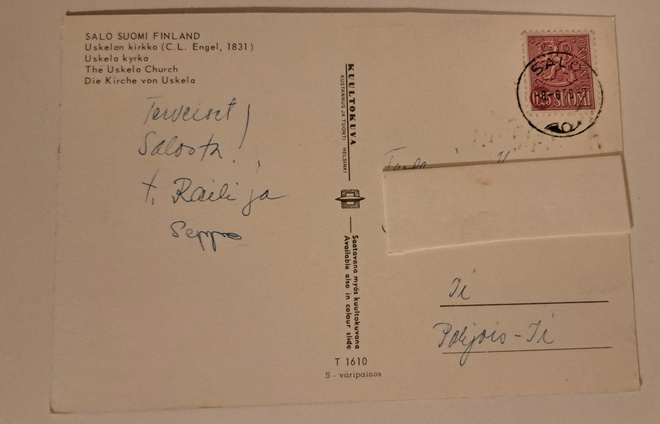 SALO SUOMI FINLAND
Uskelan kirkko (C.L. Engel, 1831)
Uskela kyrka
The Uskela Church
Die Kirche von Uskela
Terveiset!
Salosta!
t. Raili ja
Seppo
KUULTOKUVA
KUSTANNUS JA TUONTI HELSINKI
Saatavana myös kuultokuvana
Available also in colour slide
T 1610
5 - väripainos
SALO
SUOMI
Ii
Pohjois-Ii